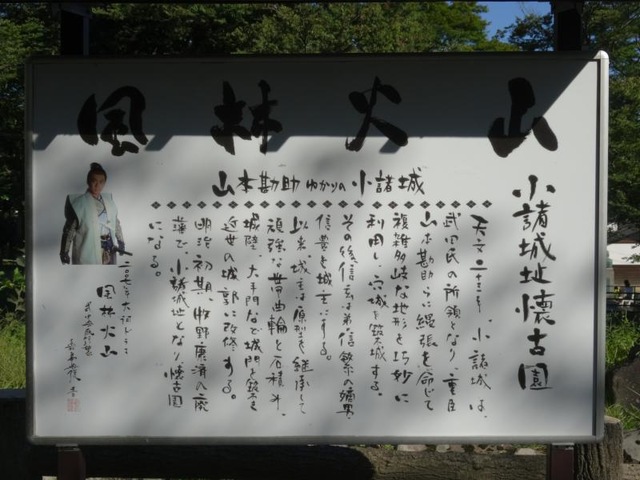 風林火山
山本勘助ゆかりの小諸城
小諸城址懐古園
天文二十三年、小諸城は、
武田氏の所領となり、重臣
山本勘助らに縄張を命じて
複雑多岐な地形を巧妙に
利用し穴城を築城する。
その後信玄の弟信繁の嫡男
信豊を城主にする。
以来、城主は原型を継承して
頑強な帯曲輪と石積み、
城陸、大手門など城門を築き
近世の城郭に改修する。
明治初期、牧野康済の廃
藩で、小諸城址となり懐古園
になる。
二〇〇七年大河ドラマ
風林火山